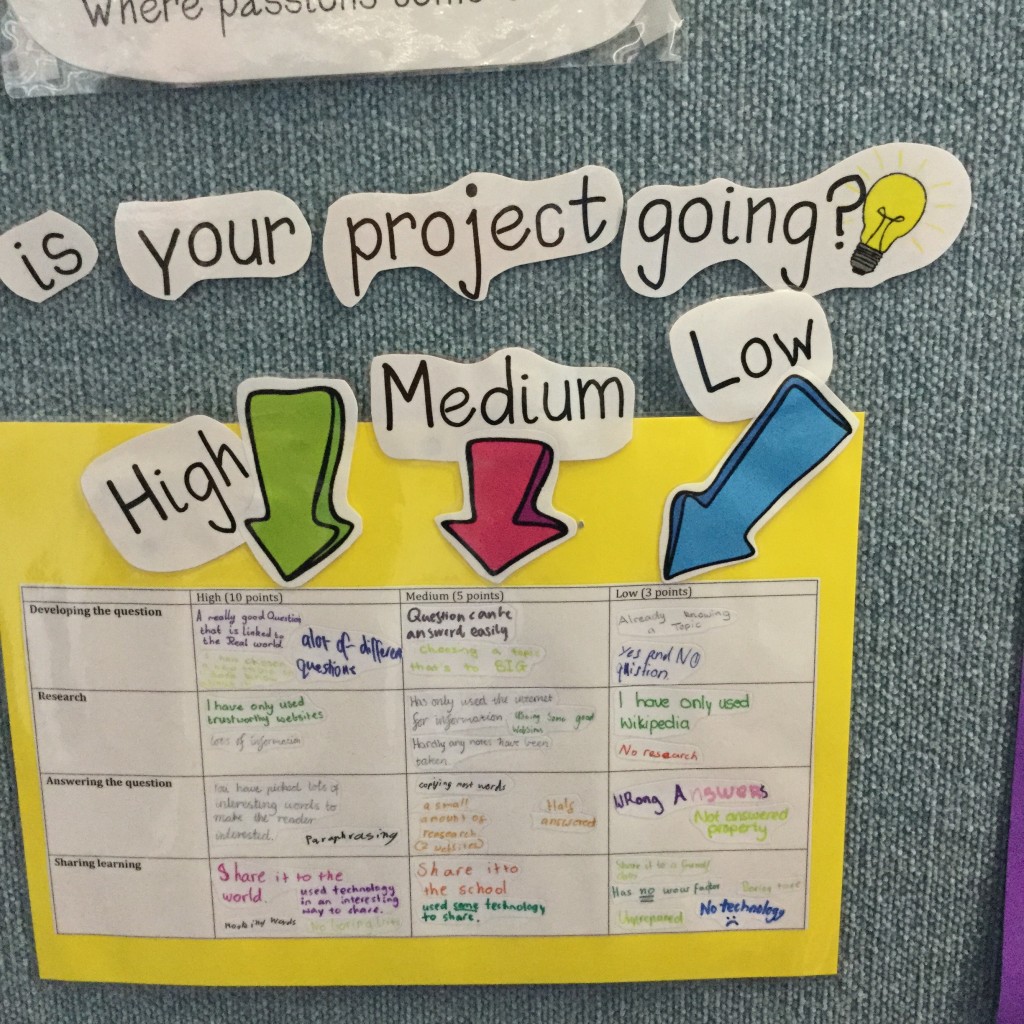 where passions come
is your project going?
High
Medium
Low
High (10 points)
Medium (5 points)
Low (3 points)
Developing the question
A really good Question
that is linked to
the Real world
alot of different
questions
Question can be
answerd easily
Choosing a topic
that's to BIG
Already knowing
a Topic
Yes and No
Research
I have only used
trustworthy websites
Lots of information
Has only used the internet
for information
Using Some good
Hardly any notes have been
taken
I have only used
wikipedia
No research
Answering the question
You have picked lots of
interesting words to
make the reader
interested.
Paraphrasing
copying most words
a small
amount of
(2 websites)
Half
answered
WRong Answers
Not answered
Sharing learning
Share it to the
world.
used technology
in an interesting
way to share.
words
Share it to
the school
used some technology
to share.
Share it to a
Has no wow factor
Boring
Unprepared
No technology